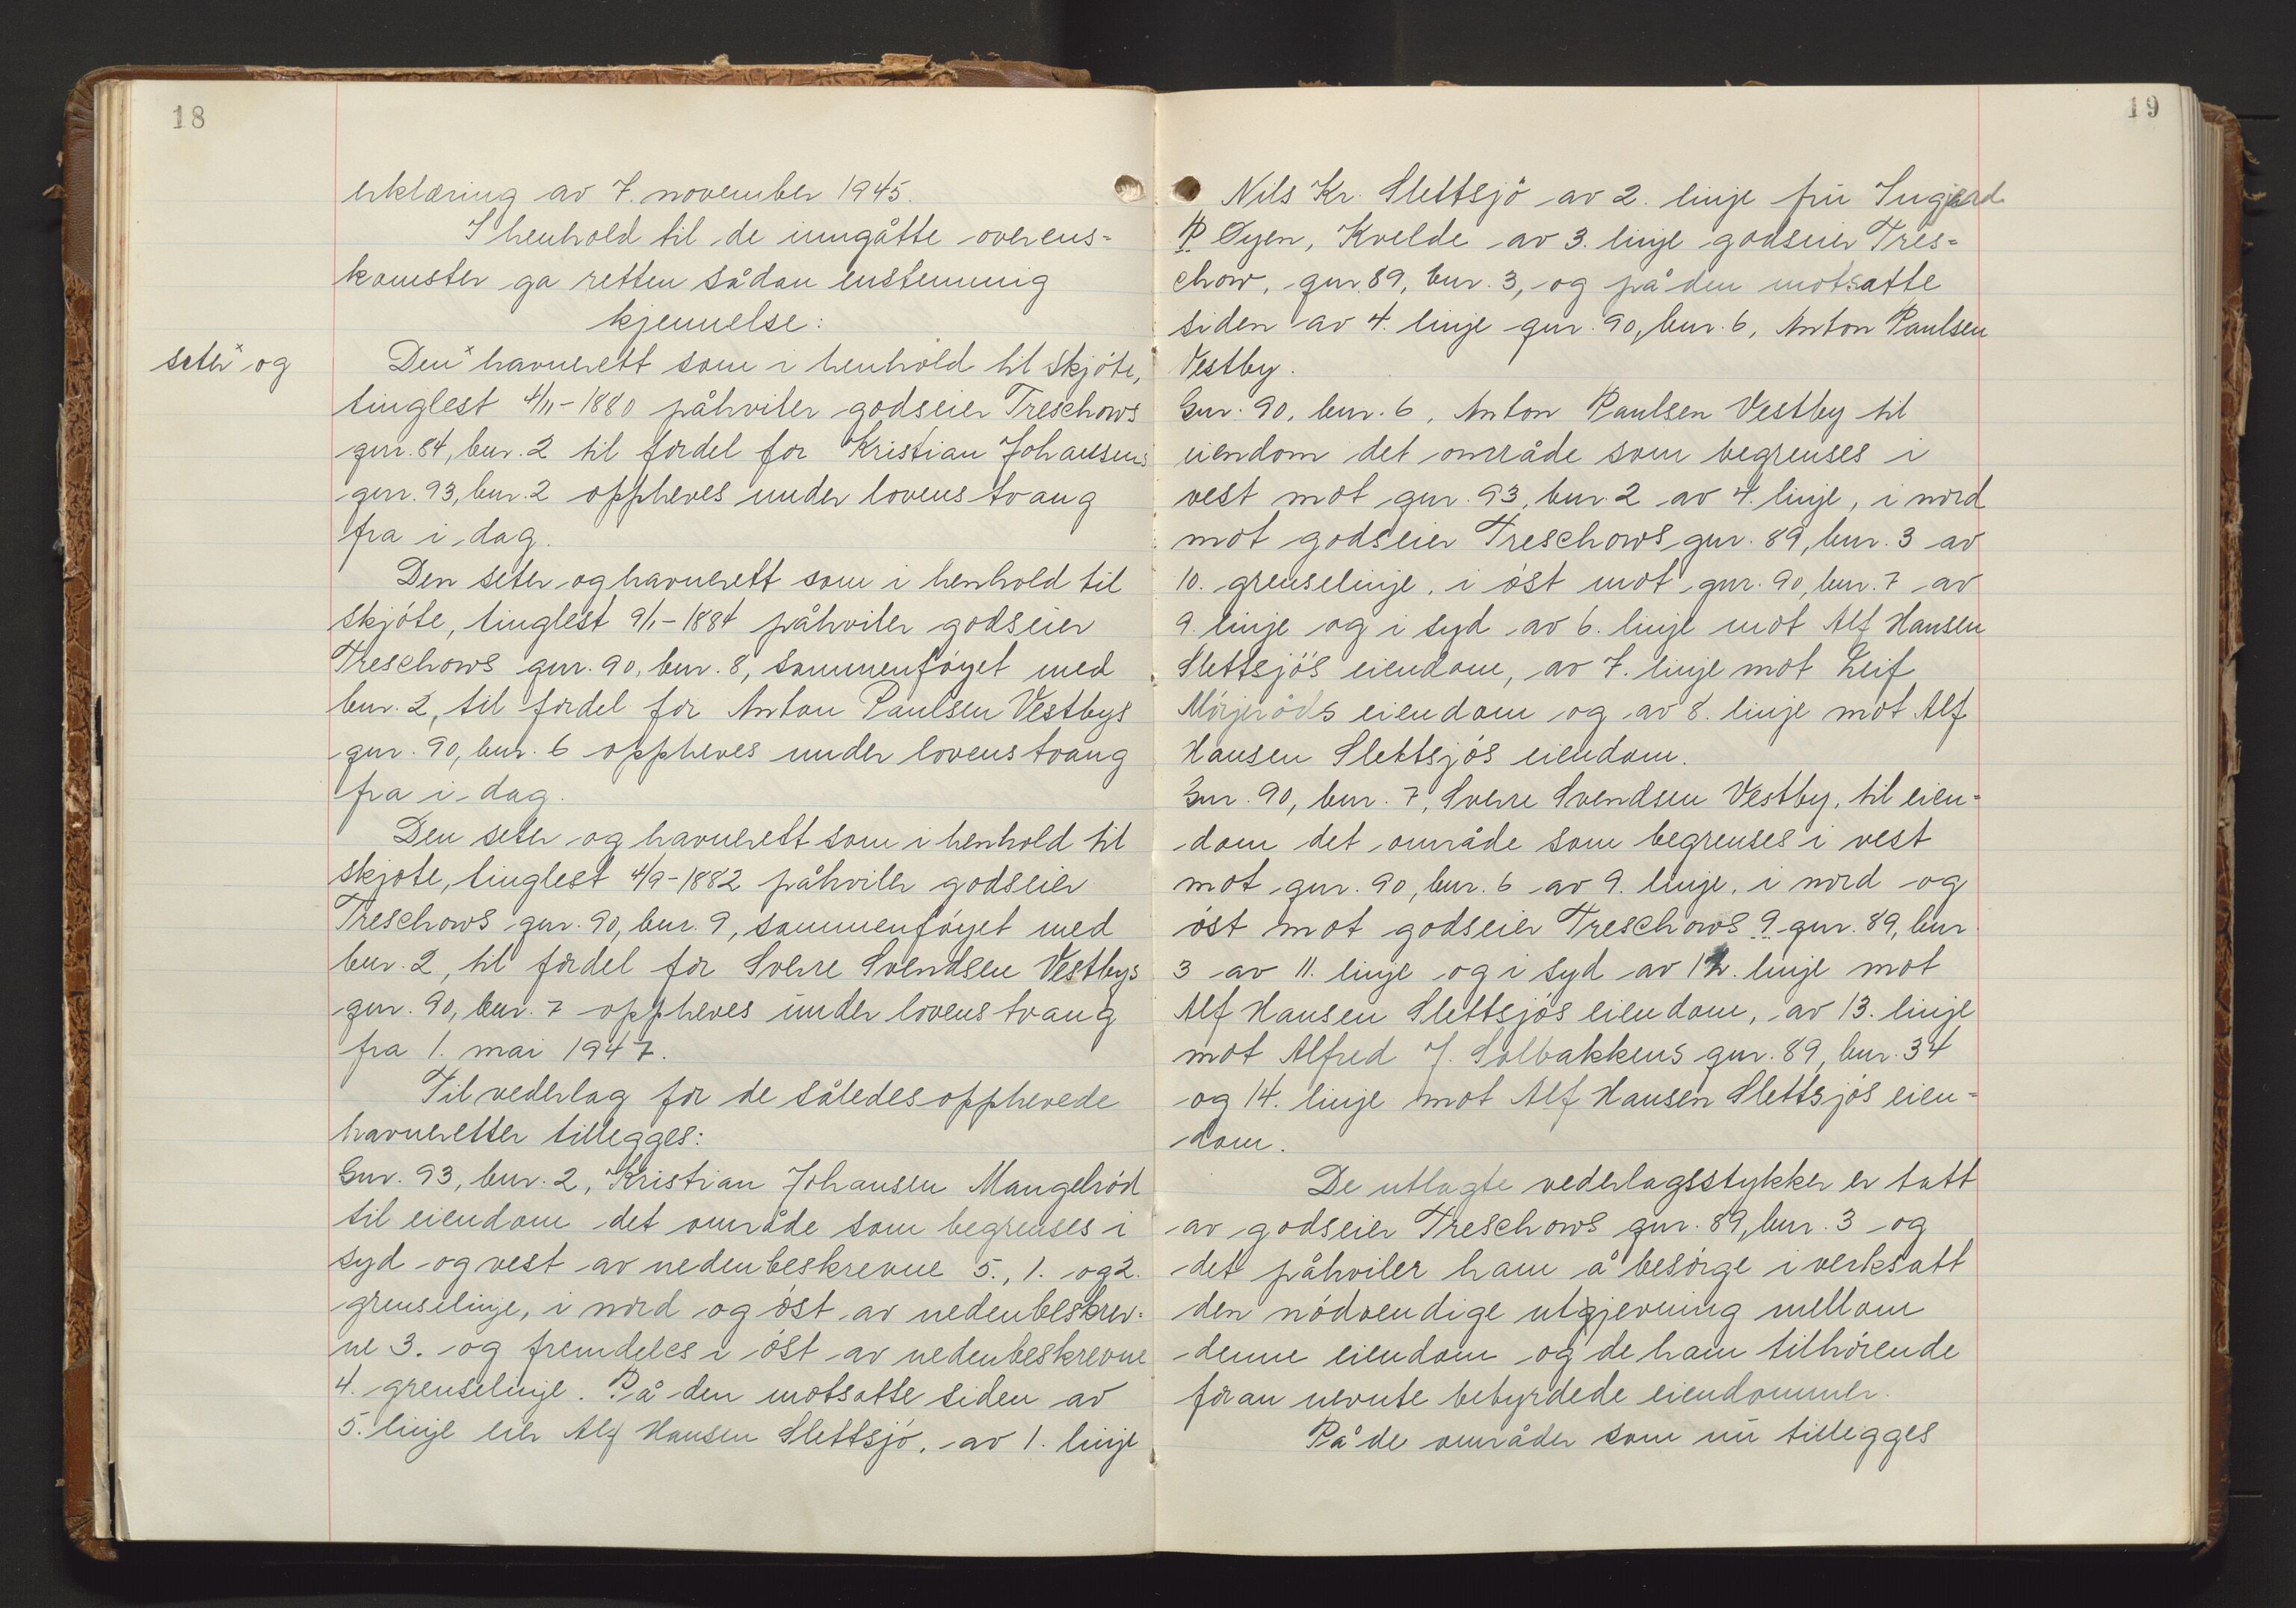 18
erklæring av 7. november 1945.
I henhold til de inngåtte overens=
komster ga retten sådan enstemmig
kjennelse:
seter* og
Den* havnerett som i henhold til skjöte,
tinglest 4/11-1880 påhviler godseier Treschows
gnr. 84, bnr. 2 til fordel for Kristian Johansens
gnr. 93, bnr. 2 oppheves under lovens tvang
fra i dag.
Den seter og havnerett som i henhold til
skjöte, tinglest 9/1-1884 påhviler godseier
Treschows gnr. 90, bnr. 8, sammenföyet med
bnr. 2, til fordel for Anton Paulsen Vestbys
gnr. 90, bnr. 6 oppheves under lovens tvang
fra i dag.
Den seter og havnerett som i henhold til
skjöte, tinglest 4/9-1882 påhviler godseier
Treschows gnr. 90, bnr. 9, sammenföyet med
bnr. 2, til fordel for Sverre Svendsen Vestbys
gnr. 90, bnr. 7 oppheves under lovens tvang
fra 1. mai 1947.
Til vederlag for de således opphevede
havneretter tillegges:
Gnr. 93, bnr. 2, Kristian Johansen Mangelröd
til eiendom det område som begrenses i
syd og vest av nedenbeskrevne 5., 1. og 2.
grenselinje, i nord og öst av nedenbeskrev=
ne 3. og fremdeles i öst av nedenbeskrevne
4. grenselinje. På den motsatte siden av
5. linje eier Alf Hansen Slettsjö, av 1. linje
19
Nils Kr. Slettsjö av 2. linje fru Ingjerd
P Oyen, Kvelde av 3. linje godseier Tres=
chow, gnr. 89, bnr. 3, og på den motsatte
siden av 4. linje gnr. 90, bnr. 6, Anton Paulsen
Vestby.
Gnr. 90, bnr. 6, Anton Paulsen Vestby til
eiendom det område som begrenses i
vest mot gnr. 93, bnr. 2 av 4. linje, i nord
mot godseier Treschows gnr. 89, bnr. 3 av
10. grenselinje, i öst mot gnr. 90, bnr. 7 av
9. linje og i syd av 6. linje mot Alf Hansen
Slettsjö's eiendom, av 7. linje mot Leif
Mörjeröds eiendom og av 8. linje mot Alf
Hansen Slettsjös eiendom.
Gnr. 90, bnr. 7, Sverre Svendsen Vestby, til eien=
dom det område som begrenses i vest
mot gnr. 90, bnr. 6 av 9. linje, i nord og
öst mot godseier Treschows 9 gnr. 89, bnr.
3 av 11. linje og i syd av 12. linje mot
Alf Hansen Slettsjös eiendom, av 13. linje
mot Alfred J. Solbakkens gnr. 89, bnr. 34
og 14. linje mot Alf Hansen Slettsjös eien=
dom.
De utlagte vederlagsstykker er tatt
av godseier Treschows gnr. 89, bnr. 3 og
det påhviler ham å besörge iverksatt
den nödvendige utgjevning mellom
denne eiendom og de ham tilhörende
foran nevnte bebyrdede eiendommer.
På de områder som nu tillegges